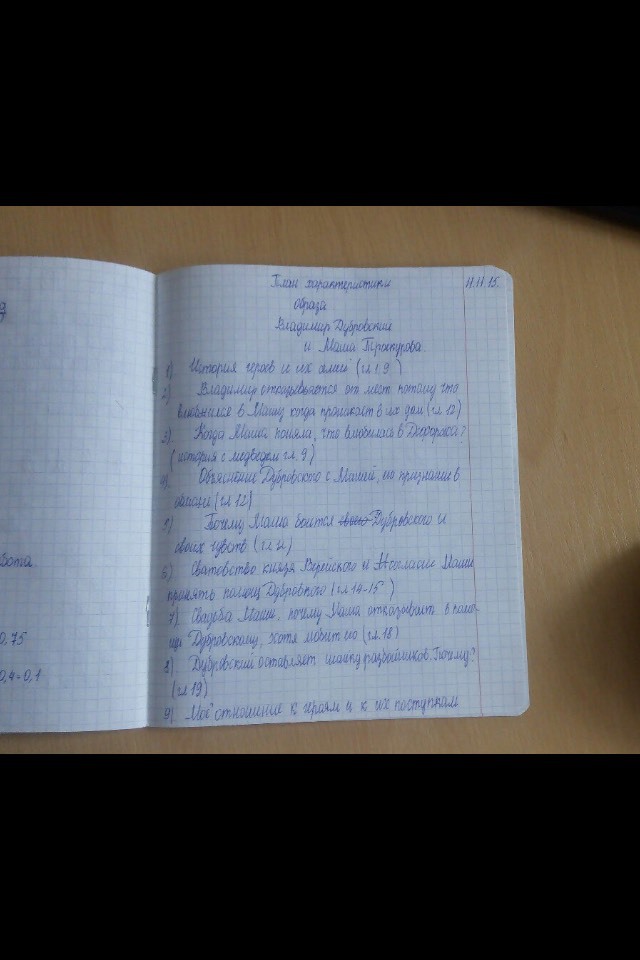 План характеристики 11.11.15.
образа
Владимир Дубровский
и Маша Троекурова.
1) История героев и их семей (гл.1.9)
2) Владимир отказывается от мест потому что
влюбился в Машу когда проникает в их дом (гл.12)
3) Когда Маша поняла, что влюбилась в Дефоржа?
(история с медведем гл.9)
4) Объяснение Дубровского с Машей, его признание в
(гл 12)
5) Почему Маша боится Дубровского и
своих чувств (гл.)
6) Сватовство князя Верейского и Несогласие Маши
принять помощ Дубровского (гл.14-15)
7) Свадьба Маши, почему Маша отказывает в помо-
щи Дубровскому, хотя любит его (гл.18)
8) Дубровский оставляет шайку разбойников. Почему?
(гл 19)
9) Моё отношение к героям и к их поступкам
фота
0,75
0,4=0,1